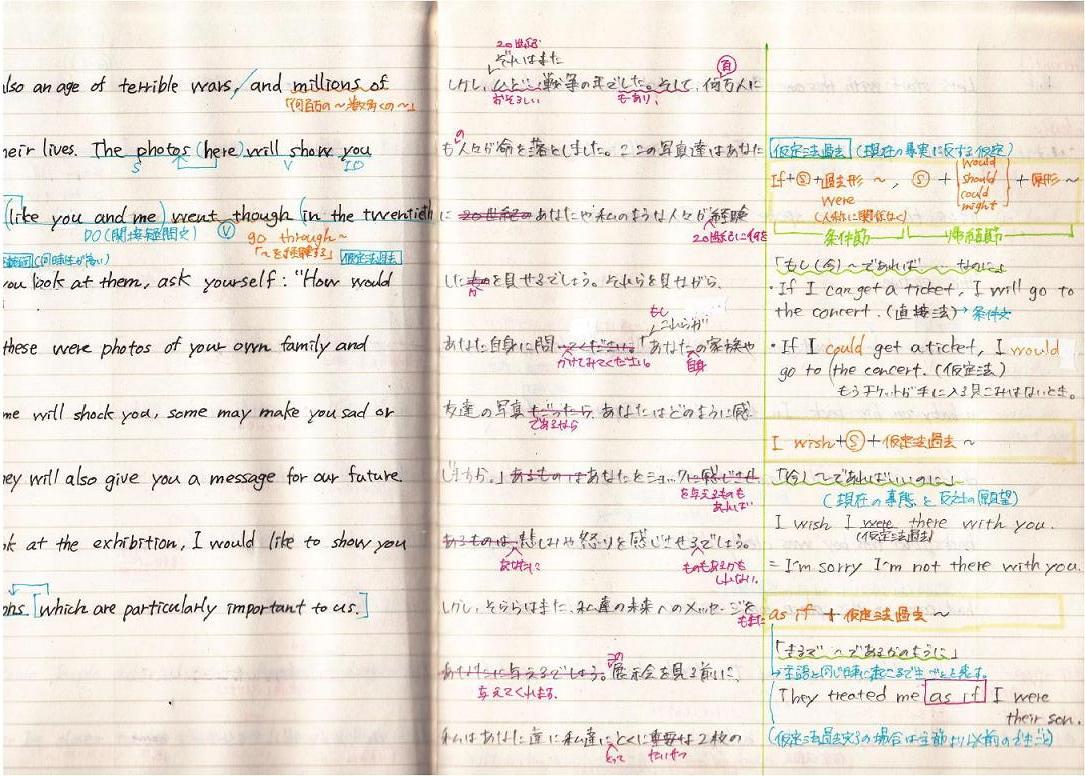 also an age of terrible wars, and millions of
「何百万の~数多くの~」
their lives. The photos (here) will show you
S V IO
(like you and me) went though (in the twentieth
DO(間接疑問文) V go through~
「~を経験する」 仮定法過去
you look at them, ask yourself: "How would
these were photos of your own family and
me will shock you, some may make you sad or
hey will also give you a message for our future.
ok at the exhibition, I would like to show you
ons [which are particularly important to us.]
20世紀
それはまた
しかし、ひどい戦争の年でした。そして、何百万人に
おそろしい もあり、
も の人々が命を落としました。ここの写真達はあなた
に 20世紀の あなたや私のような人々が経験
20世紀に何を
した を見せるでしょう。それらを見ながら、
か
もし
これらが
あなた自身に問 ってください。「あなたの家族や
かけてみてください。 自身
友達の写真だったら、あなたはどのように感
であるなら
じますか。」あるものはあなたをショックに感じさせ、
を与えるものも
あれば
あるものは悲しみや怒りを感じさせるでしょう。
あなたに ものもあるかも
しれない。
しかし、それらはまた、私達の未来へのメッセージを
もまた
あなたに与えるでしょう。この展示会を見る前に、
与えてくれます。
私はあなた達に私達にとくに重要な2枚の
とって たいせつ
仮定法過去 (現在の事実に反する仮定)
If+S+過去形 ~, S + would should could might +原形~
were
(人称に関係なく)
条件節 帰結節
「もし(今)~であれば … なのに」
・If I can get a ticket, I will go to
the concert. (直接法)→条件文
・If I could get a ticket, I would
go to the concert. (仮定法)
もうチケットが手に入る見こみはないとき。
I wish+S+仮定法過去~
「(今)~であればいいのに」
(現在の事態と反対の願望)
I wish I were there with you.
(仮定法過去)
= I'm sorry I'm not there with you.
as if + 仮定法過去~
「まるで~であるかのように」
→主語と同じ時に起こるできごとを表す。
They treated me as if I were
their son.
(仮定法過去完了の場合は主節より以前のできごと)